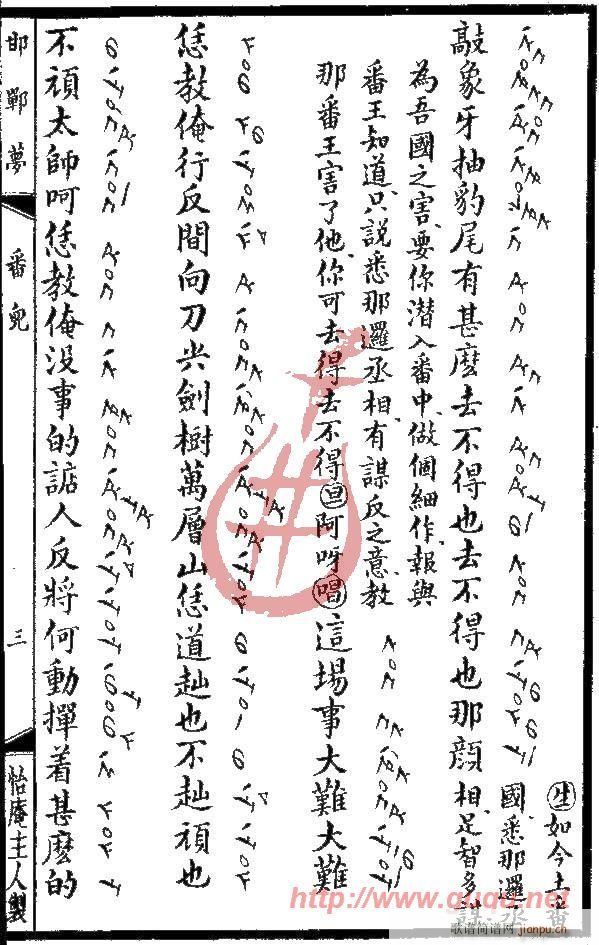 敲象牙抽豹尾有甚麼去不得也去不得也那顔
生如今土番
國、悉那邏丞
相、足智多謀
為吾國之害、要你潛入番中、做個細作、報與
番王知道、只說悉那邏丞相、有謀反之意、教
那番王害了他、你可去得去不得旦阿呀唱這場事大難大難
恁教俺行反間向刀尖劍樹萬層山恁道赸也不赸頑也
不頑太師呵恁教俺没事的掂人反將何動撣着甚麽的
邯鄲夢
番兒
三
怡庵主人製
http://www.guqu.net
歌谱简谱网
jianpu.cn